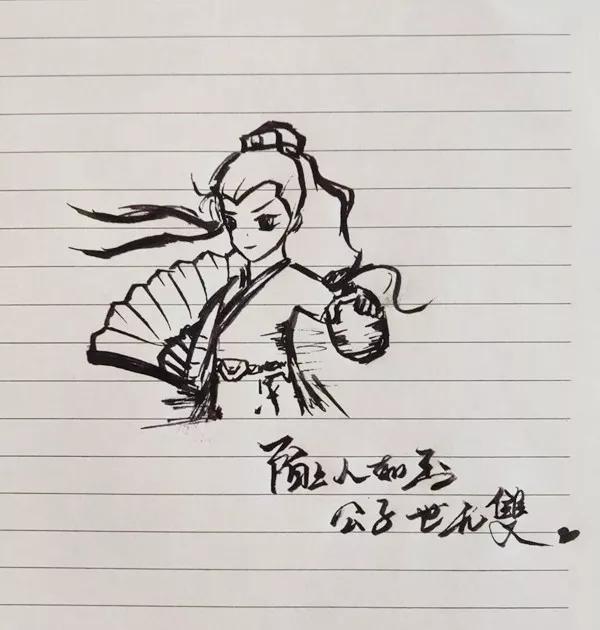 陌上人如玉
公子世无雙